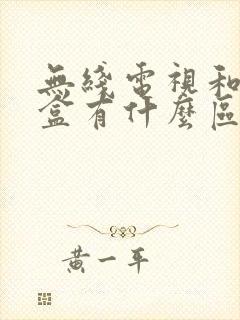 無綫電視和
盒有什麼區
黃一平